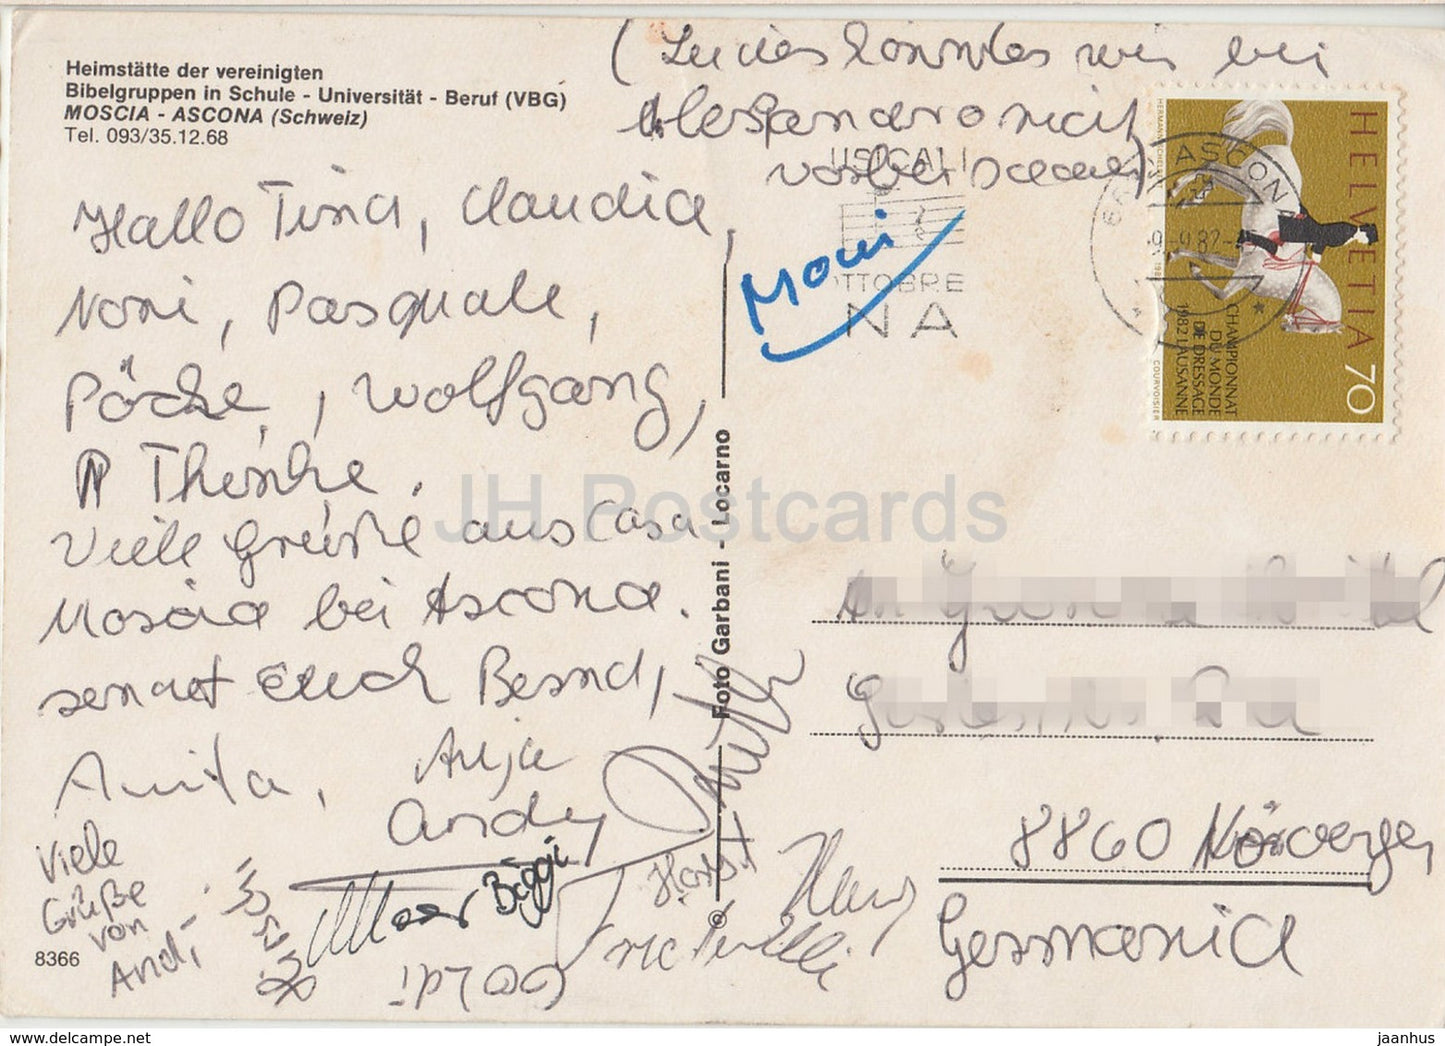 Heimstätte der vereinigten
Bibelgruppen in Schule - Universität - Beruf (VBG)
MOSCIA - ASCONA (Schweiz)
Tel. 093/35.12.68
(Leider konnten wir bei
Alessandro nicht
vorbei
Hallo Tina, Claudia,
Noni, Pasquale,
Pöcke, Wolfgang,
Thenke.
Viele Grüße aus Casa
Moscia bei Ascona.
sendet Euch Bernd,
Anita, Anja
Andy
Viele
Grüße
von
Andi
Biggi
Horst
Hans
8366
Foto Garbani - Locarno
USICALI
OTTOBRE
NA
ASCONA
9.-9.82
HELVETIA 70
CHAMPIONNAT
DU MONDE
DE DRESSAGE
1982 LAUSANNE
COURVOISIER
An
8860
Germania
JH Postcards
jaanhus